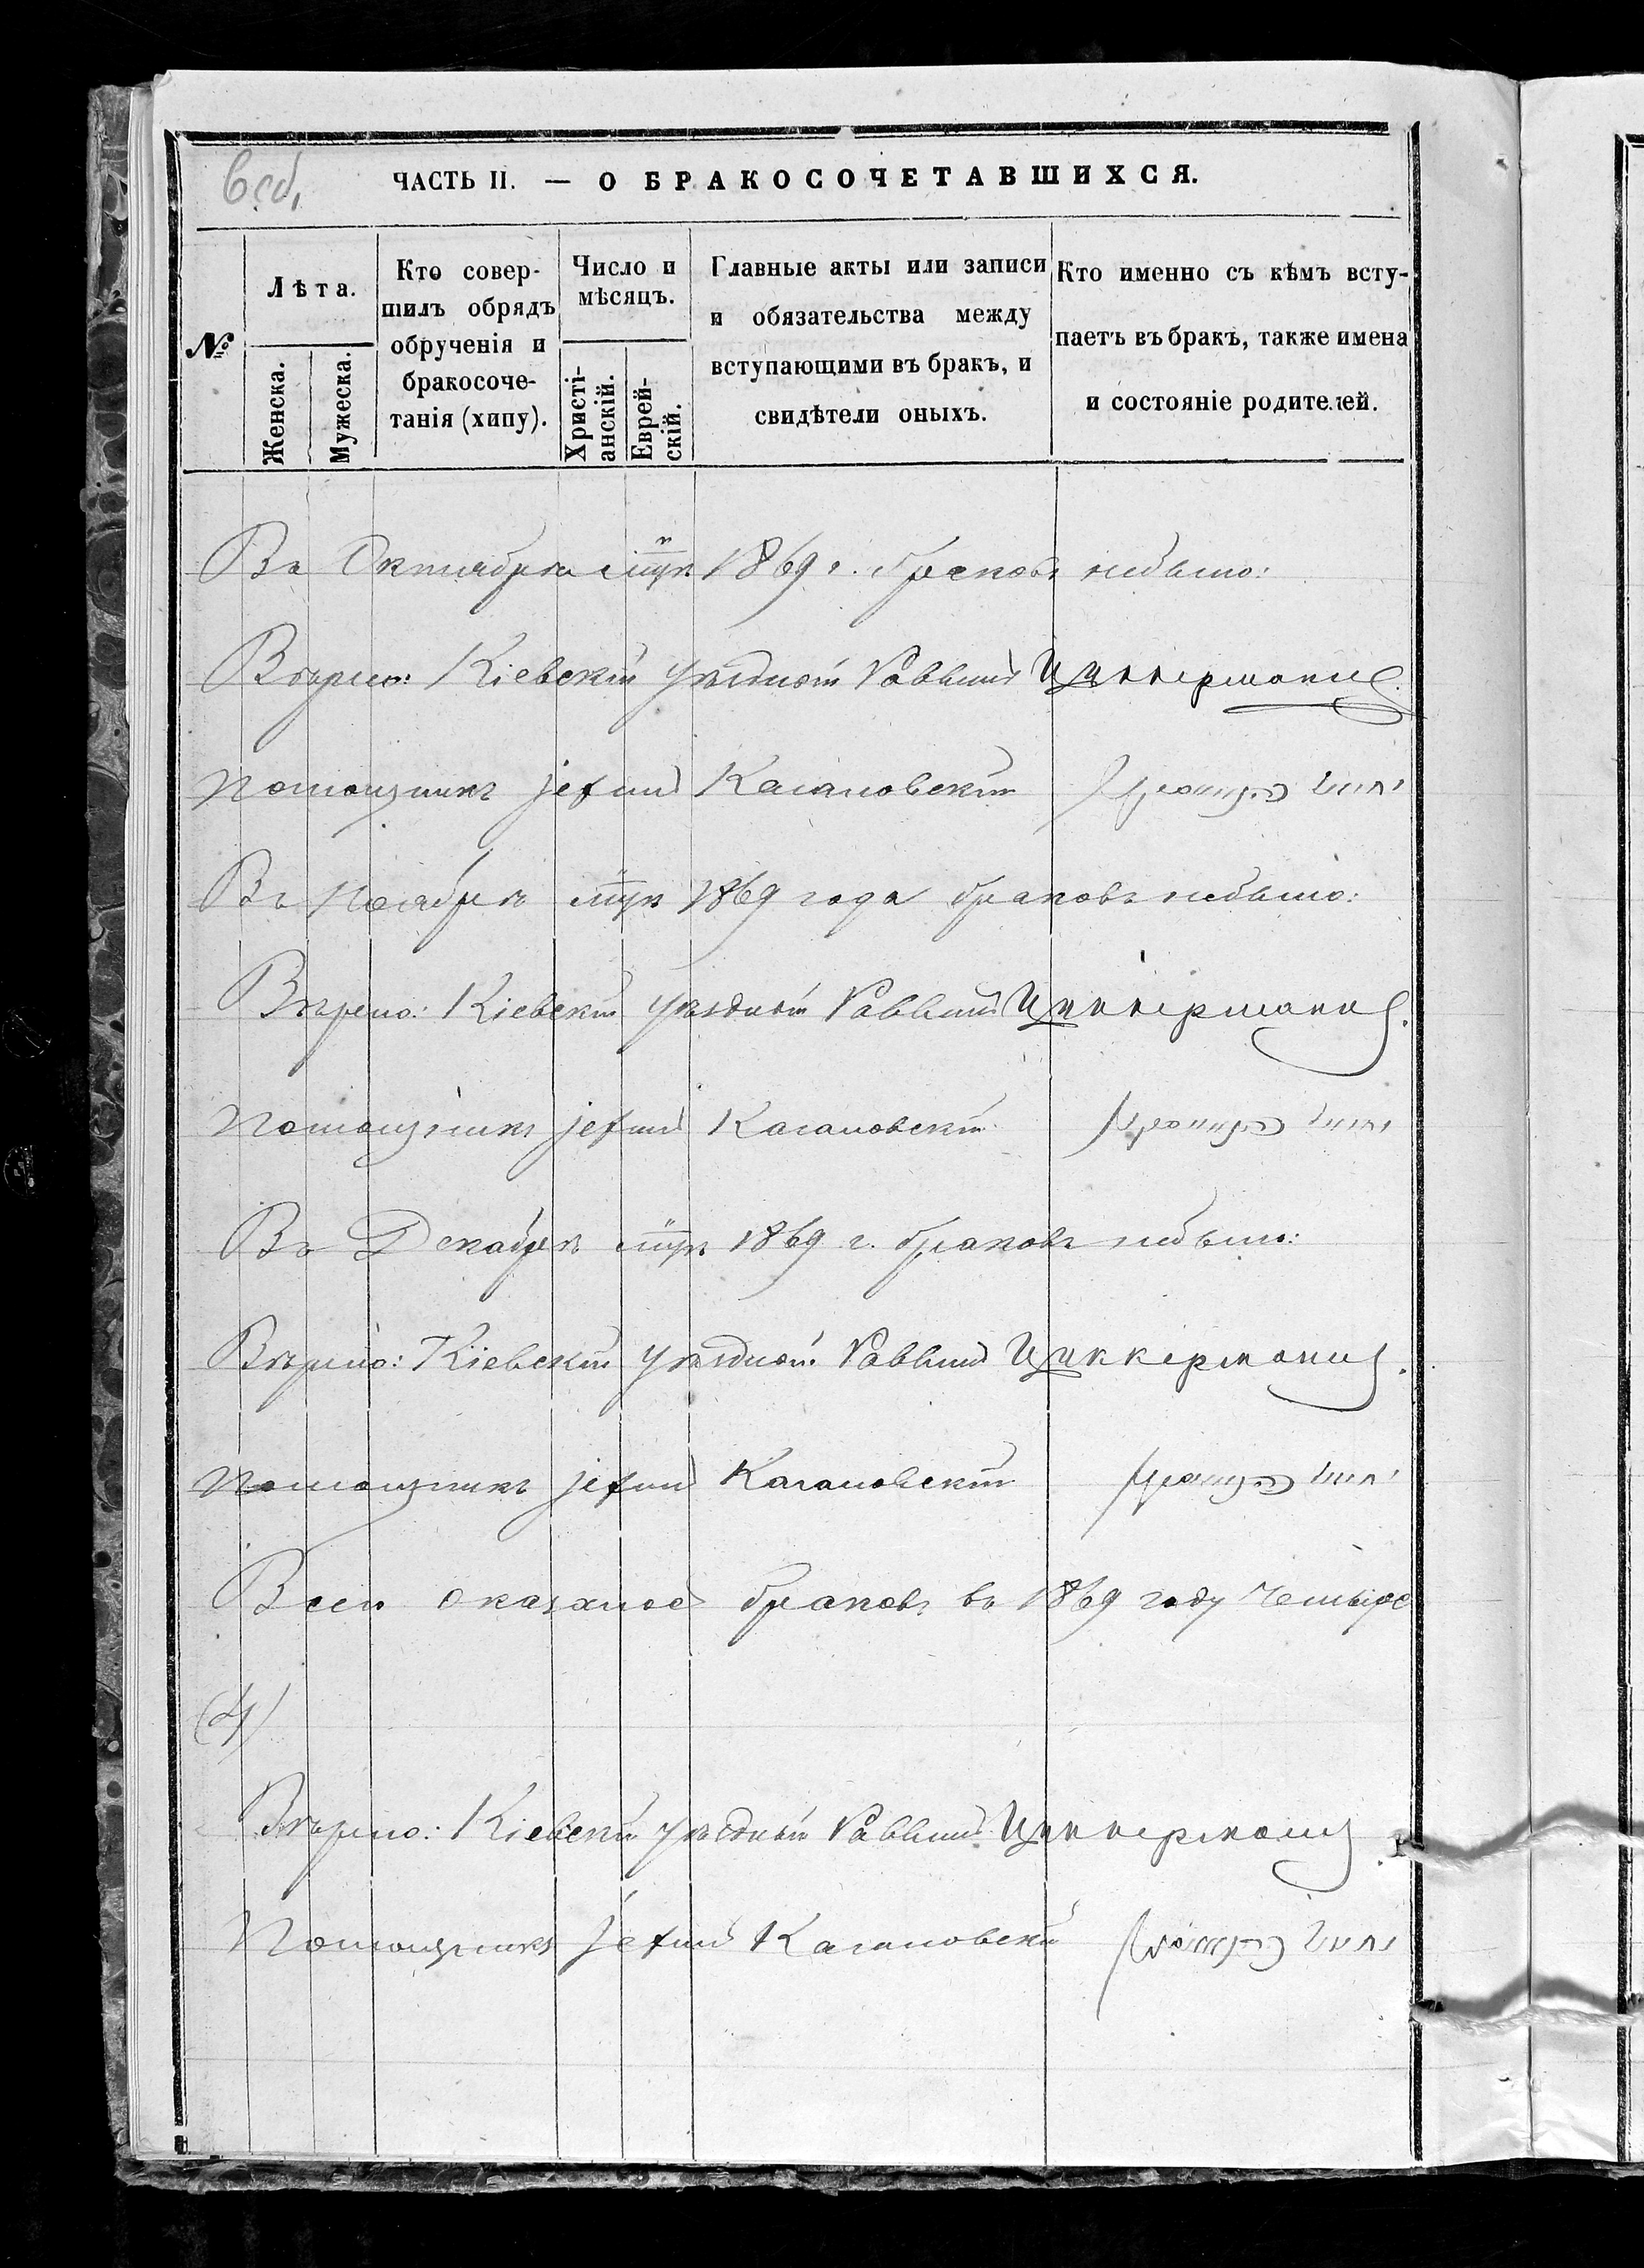 6 об.
ЧАСТЬ II. — О БРАКОСОЧЕТАВШИХСЯ.
№
Лѣта.
Женска.
Мужеска.
Кто совер-
шилъ обрядъ
обрученія и
бракосоче-
танія (хипу).
Число и
мѣсяцъ.
Христі-
анскій.
Еврей-
скій.
Главные акты или записи
и обязательства между
вступающими въ бракъ, и
свидѣтели оныхъ.
Кто именно съ кѣмъ всту-
паетъ въ бракъ, также имена
и состояніе родителей.
Въ Октябрѣ мцѣ 1869 г. браковъ небыло:
Вѣрно: Кіевскій уѣздный Раввинъ Цуккерманъ.
Помощникъ Хаимъ Кагановскій
Въ Ноябрѣ мцѣ 1869 года браковъ небыло:
Вѣрно: Кіевскій уѣздный Раввинъ Цуккерманъ.
Помощникъ Кагановскій
Въ Декабрѣ мцѣ 1869 г. браковъ небыло:
Вѣрно: Кіевскій уѣздный Раввинъ Цуккерманъ.
Помощникъ Кагановскій
Всего оказалось браковъ въ 1869 году четыре
(4)
Вѣрно: Кіевскій уѣздный Раввинъ Цуккерманъ
Помощникъ Кагановскій